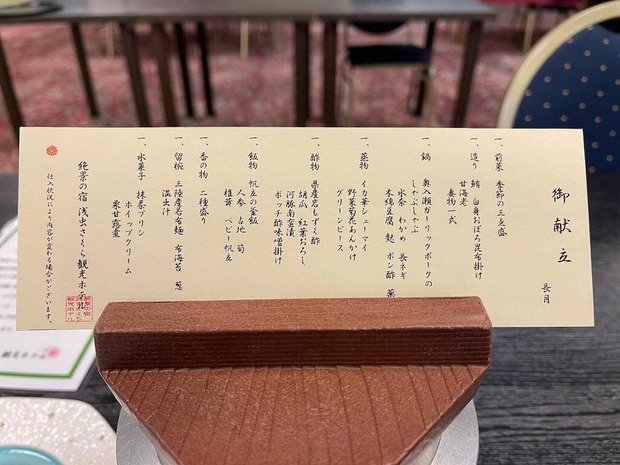 御献立
長月
一、前菜 季節の三点盛
一、造り 鮪 白身おぼろ昆布掛け
甘海老
妻物一式
一、鍋 奥入瀬ガーリックポークの
しゃぶしゃぶ
水菜 わかめ 長ネギ
木綿豆腐 麩 ポン酢 薬
一、蒸物 イカ華シューマイ
野菜菊花あんかけ
グリーンピース
一、酢物 県産岩もずく酢
胡瓜 紅葉おろし
河豚南蛮漬
ポッチ酢味噌掛け
一、飯物 帆立の釜飯
人参 占地 筍
椎茸 ベビー帆立
一、香の物 二種盛り
一、留椀 三陸産若布麺 布海苔 葱
温出汁
一、水菓子 抹茶プリン
ホイップクリーム
栗甘露煮
絶景の宿 浅虫さくら観光ホテル
仕入状況により内容が変わる場合がございます。